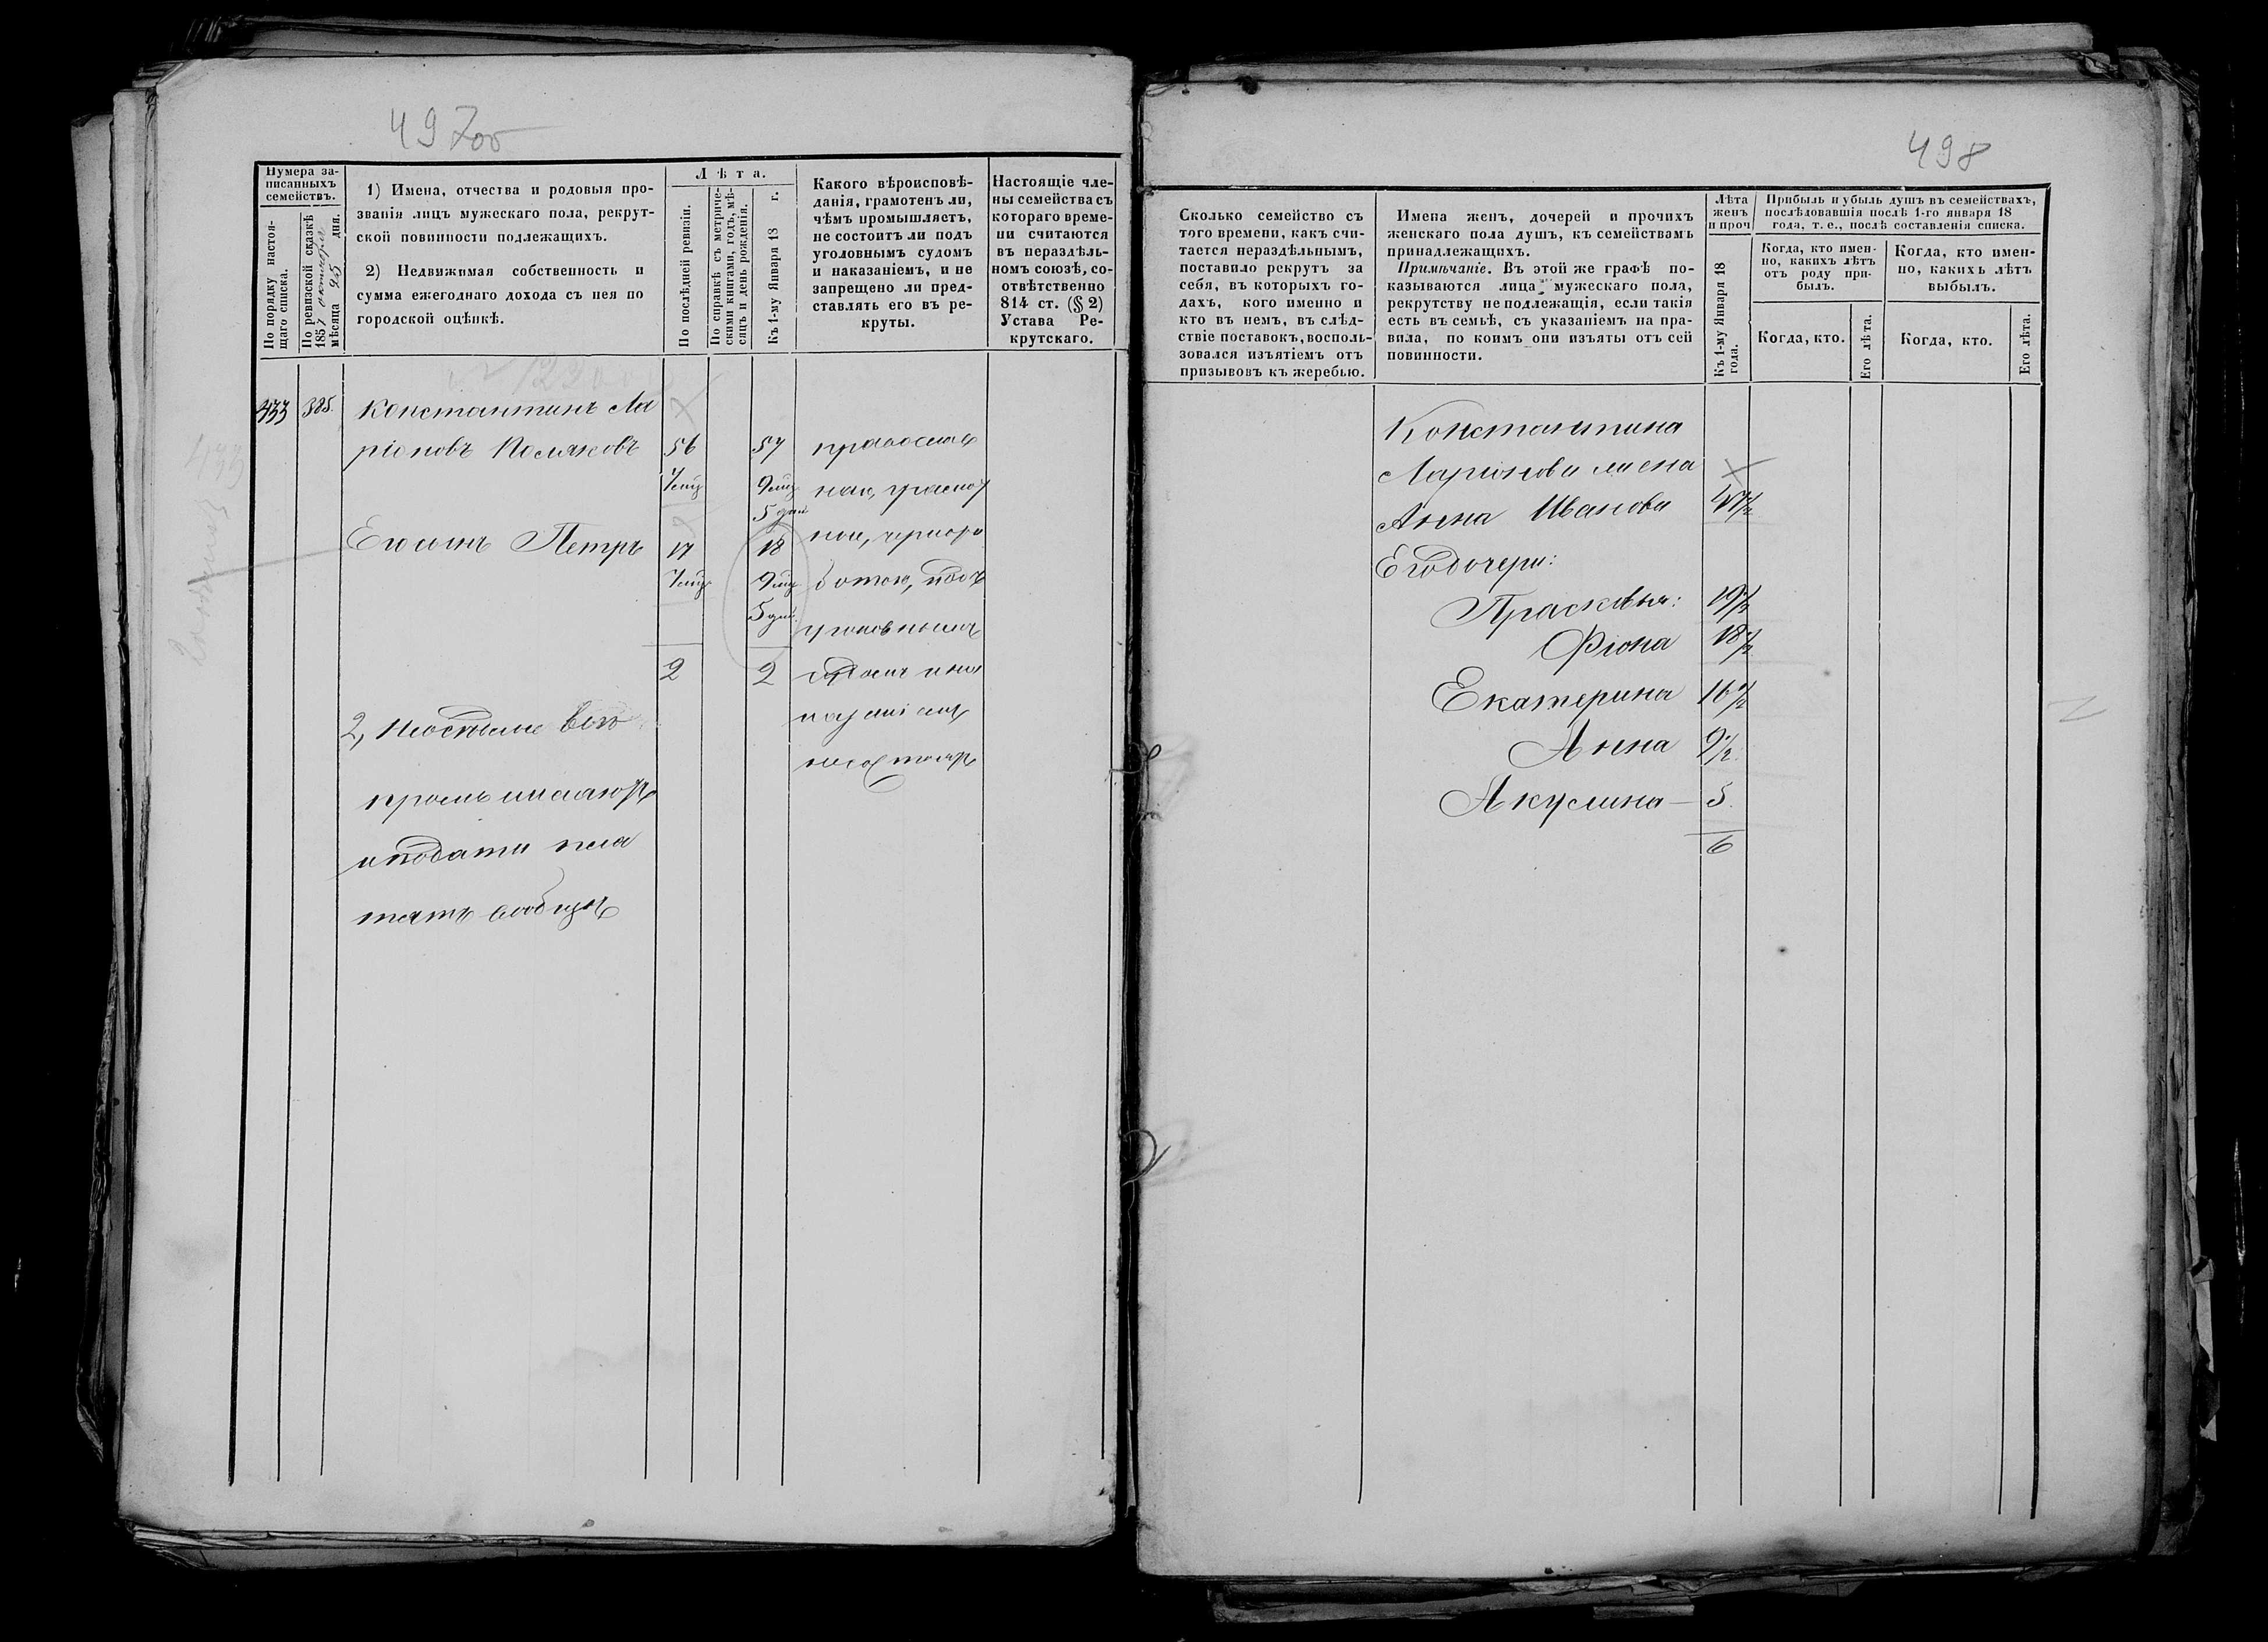 497об
Нумера за-
писанныхъ
семействъ.
По порядку настоя-
щаго списка.
По ревизской сказкѣ
1857 октября
мѣсяца 25 дня.
1) Имена, отчества и родовыя про-
званія лицъ мужескаго пола, рекрут-
ской повинности подлежащихъ.
2) Недвижимая собственность и
сумма ежегоднаго дохода съ нея по
городской оцѣнкѣ.
Лѣта.
По послѣдней ревизіи.
По справкѣ съ метриче-
скими книгами, годъ, мѣ-
сяцъ и день рожденія.
Къ 1-му Января 18 г.
Какого вѣроисповѣ-
данія, грамотенъ ли,
чѣмъ промышляетъ,
не состоитъ ли подъ
уголовнымъ судомъ
и наказаніемъ, и не
запрещено ли пред-
ставлять его въ ре-
круты.
Настоящіе чле-
ны семейства съ
котораго време-
ни считаются
въ нераздѣль-
номъ союзѣ, со-
отвѣтственно
814 ст. (§ 2)
Устава Ре-
крутскаго.
433 385. Константинъ Ла
ріоновъ Поляковъ 56 57 православ
7 мц 9 мц
5 дни
Его сынъ Петръ 17 18 ной, черно ра
7 мц 9 мц ботою, подъ
5 дни уголовнымъ
2 2 судомъ и на
2,
казаніемъ
и подати пла
тятъ сообща
433
498
Сколько семейство съ
того времени, какъ счи-
тается нераздѣльнымъ,
поставило рекрутъ за
себя, въ которыхъ го-
дахъ, кого именно и
кто въ немъ, въ слѣд-
ствіе поставокъ, восполь-
зовался изъятіемъ отъ
призывовъ къ жеребью.
Имена женъ, дочерей и прочихъ
женскаго пола душъ, къ семействамъ
принадлежащихъ.
Примѣчаніе. Въ этой же графѣ по-
казываются лица мужескаго пола,
рекрутству не подлежащія, если такія
есть въ семьѣ, съ указаніемъ на пра-
вила, по коимъ они изъяты отъ сей
повинности.
Лѣта
женъ
и проч
Къ 1-му Января 18
года.
Прибыль и убыль душъ въ семействахъ,
послѣдовавшія послѣ 1-го января 18
года, т. е., послѣ составленія списка.
Когда, кто имен-
но, какихъ лѣтъ
отъ роду при-
былъ.
Когда, кто.
Его лѣта.
Когда, кто имен-
но, какихъ лѣтъ
выбылъ.
Когда, кто.
Его лѣта.
Константина
Ларіонова жена
Анна Иванова 47 1/2
Его дочери:
Прасковья: 19 1/2
Фіона 18 1/2
Екатерина 16 1/2
Анна 9 1/2
Акулина — 5.
6